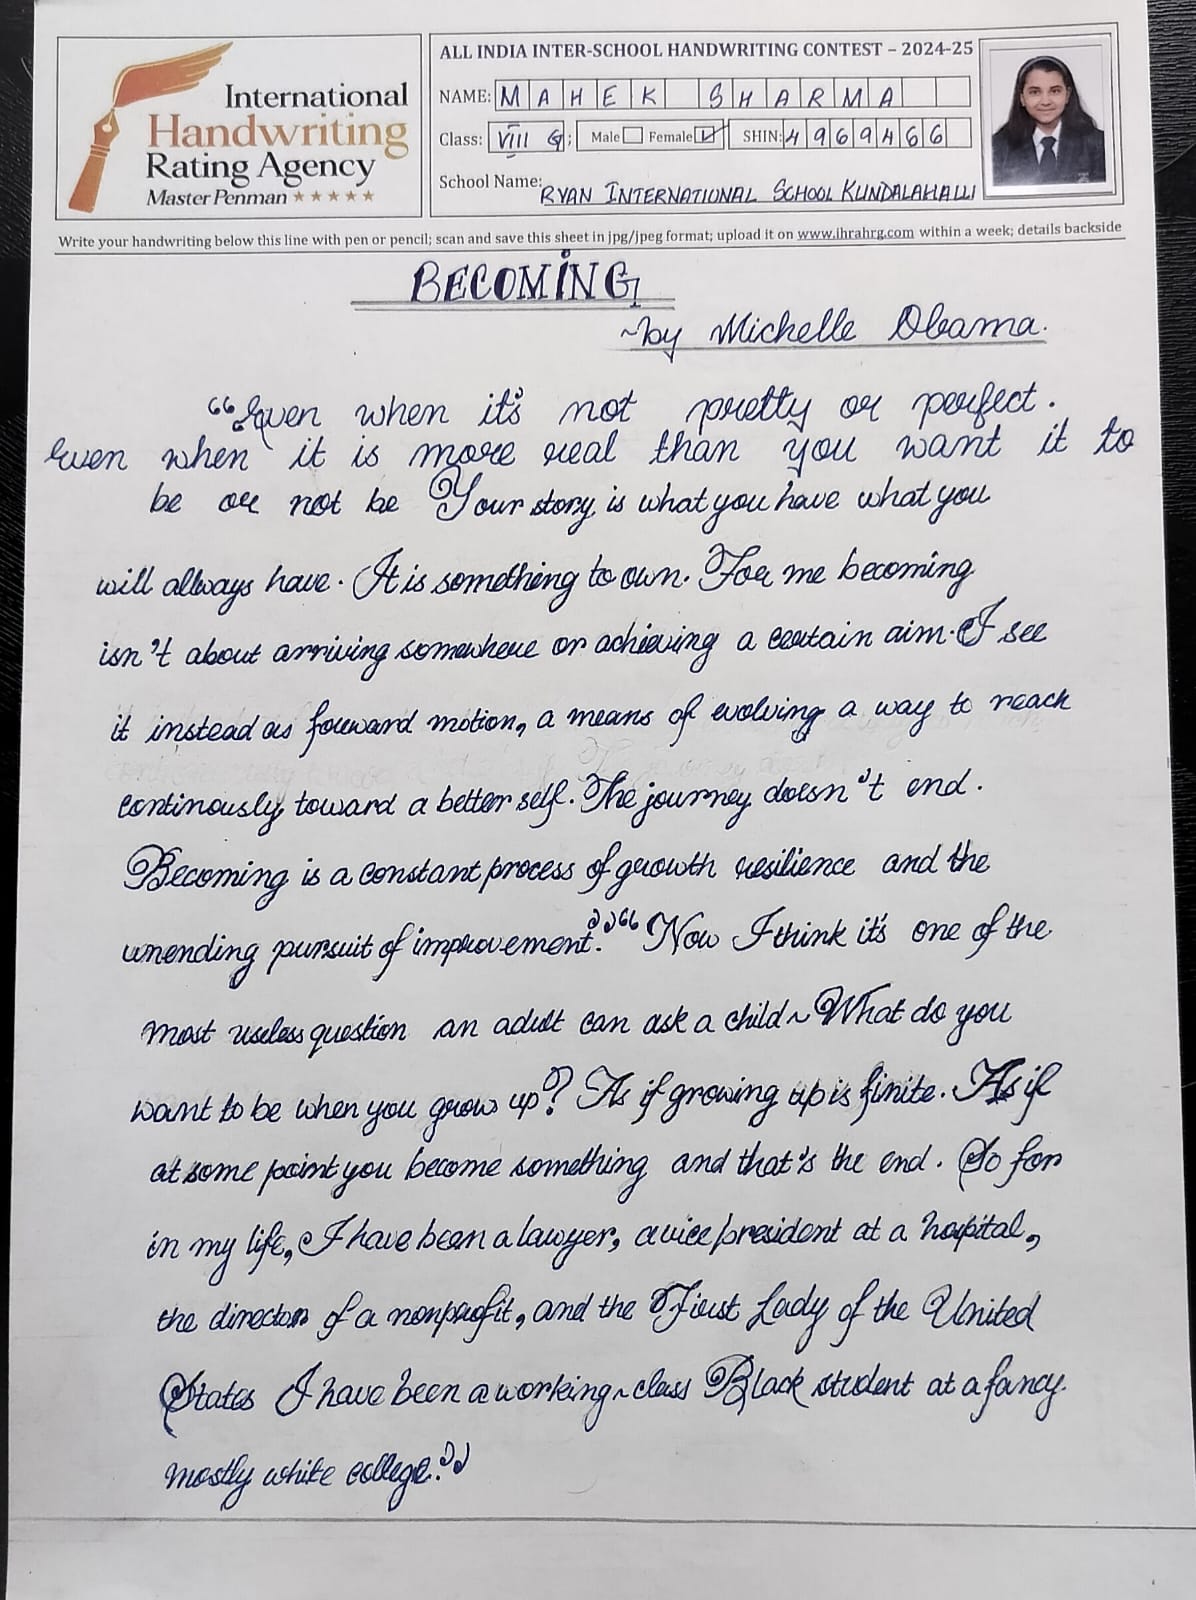 International
Handwriting
Rating Agency
Master Penman ★★★★★
ALL INDIA INTER-SCHOOL HANDWRITING CONTEST – 2024-25
NAME: MAHEK SHARMA
Class: VIII G; Male Female ✓ SHIN: 4969466
School Name: RYAN INTERNATIONAL SCHOOL KUNDALAHALLI
Write your handwriting below this line with pen or pencil; scan and save this sheet in jpg/jpeg format; upload it on www.ihrahrg.com within a week; details backside
BECOMING
~by Michelle Obama.
“Even when it's not pretty or perfect.
Even when it is more real than you want it to
be or not be Your story is what you have what you
will allways have. It is something to own. For me becoming
isn't about arriving somewhere or achieving a certain aim. I see
it instead as forward motion, a means of evolving a way to reach
continously toward a better self. The journey doesn't end.
Becoming is a constant process of growth resilience and the
unending pursuit of improvement.” “Now I think it's one of the
most useless question an adult can ask a child~ What do you
want to be when you grow up? As if growing up is finite. As if
at some point you become something and that's the end. So for
in my life, I have been a lawyer, a vice president at a hospital,
the director of a nonprofit, and the First Lady of the United
States I have been a working~class Black student at a fancy.
mostly white college.”